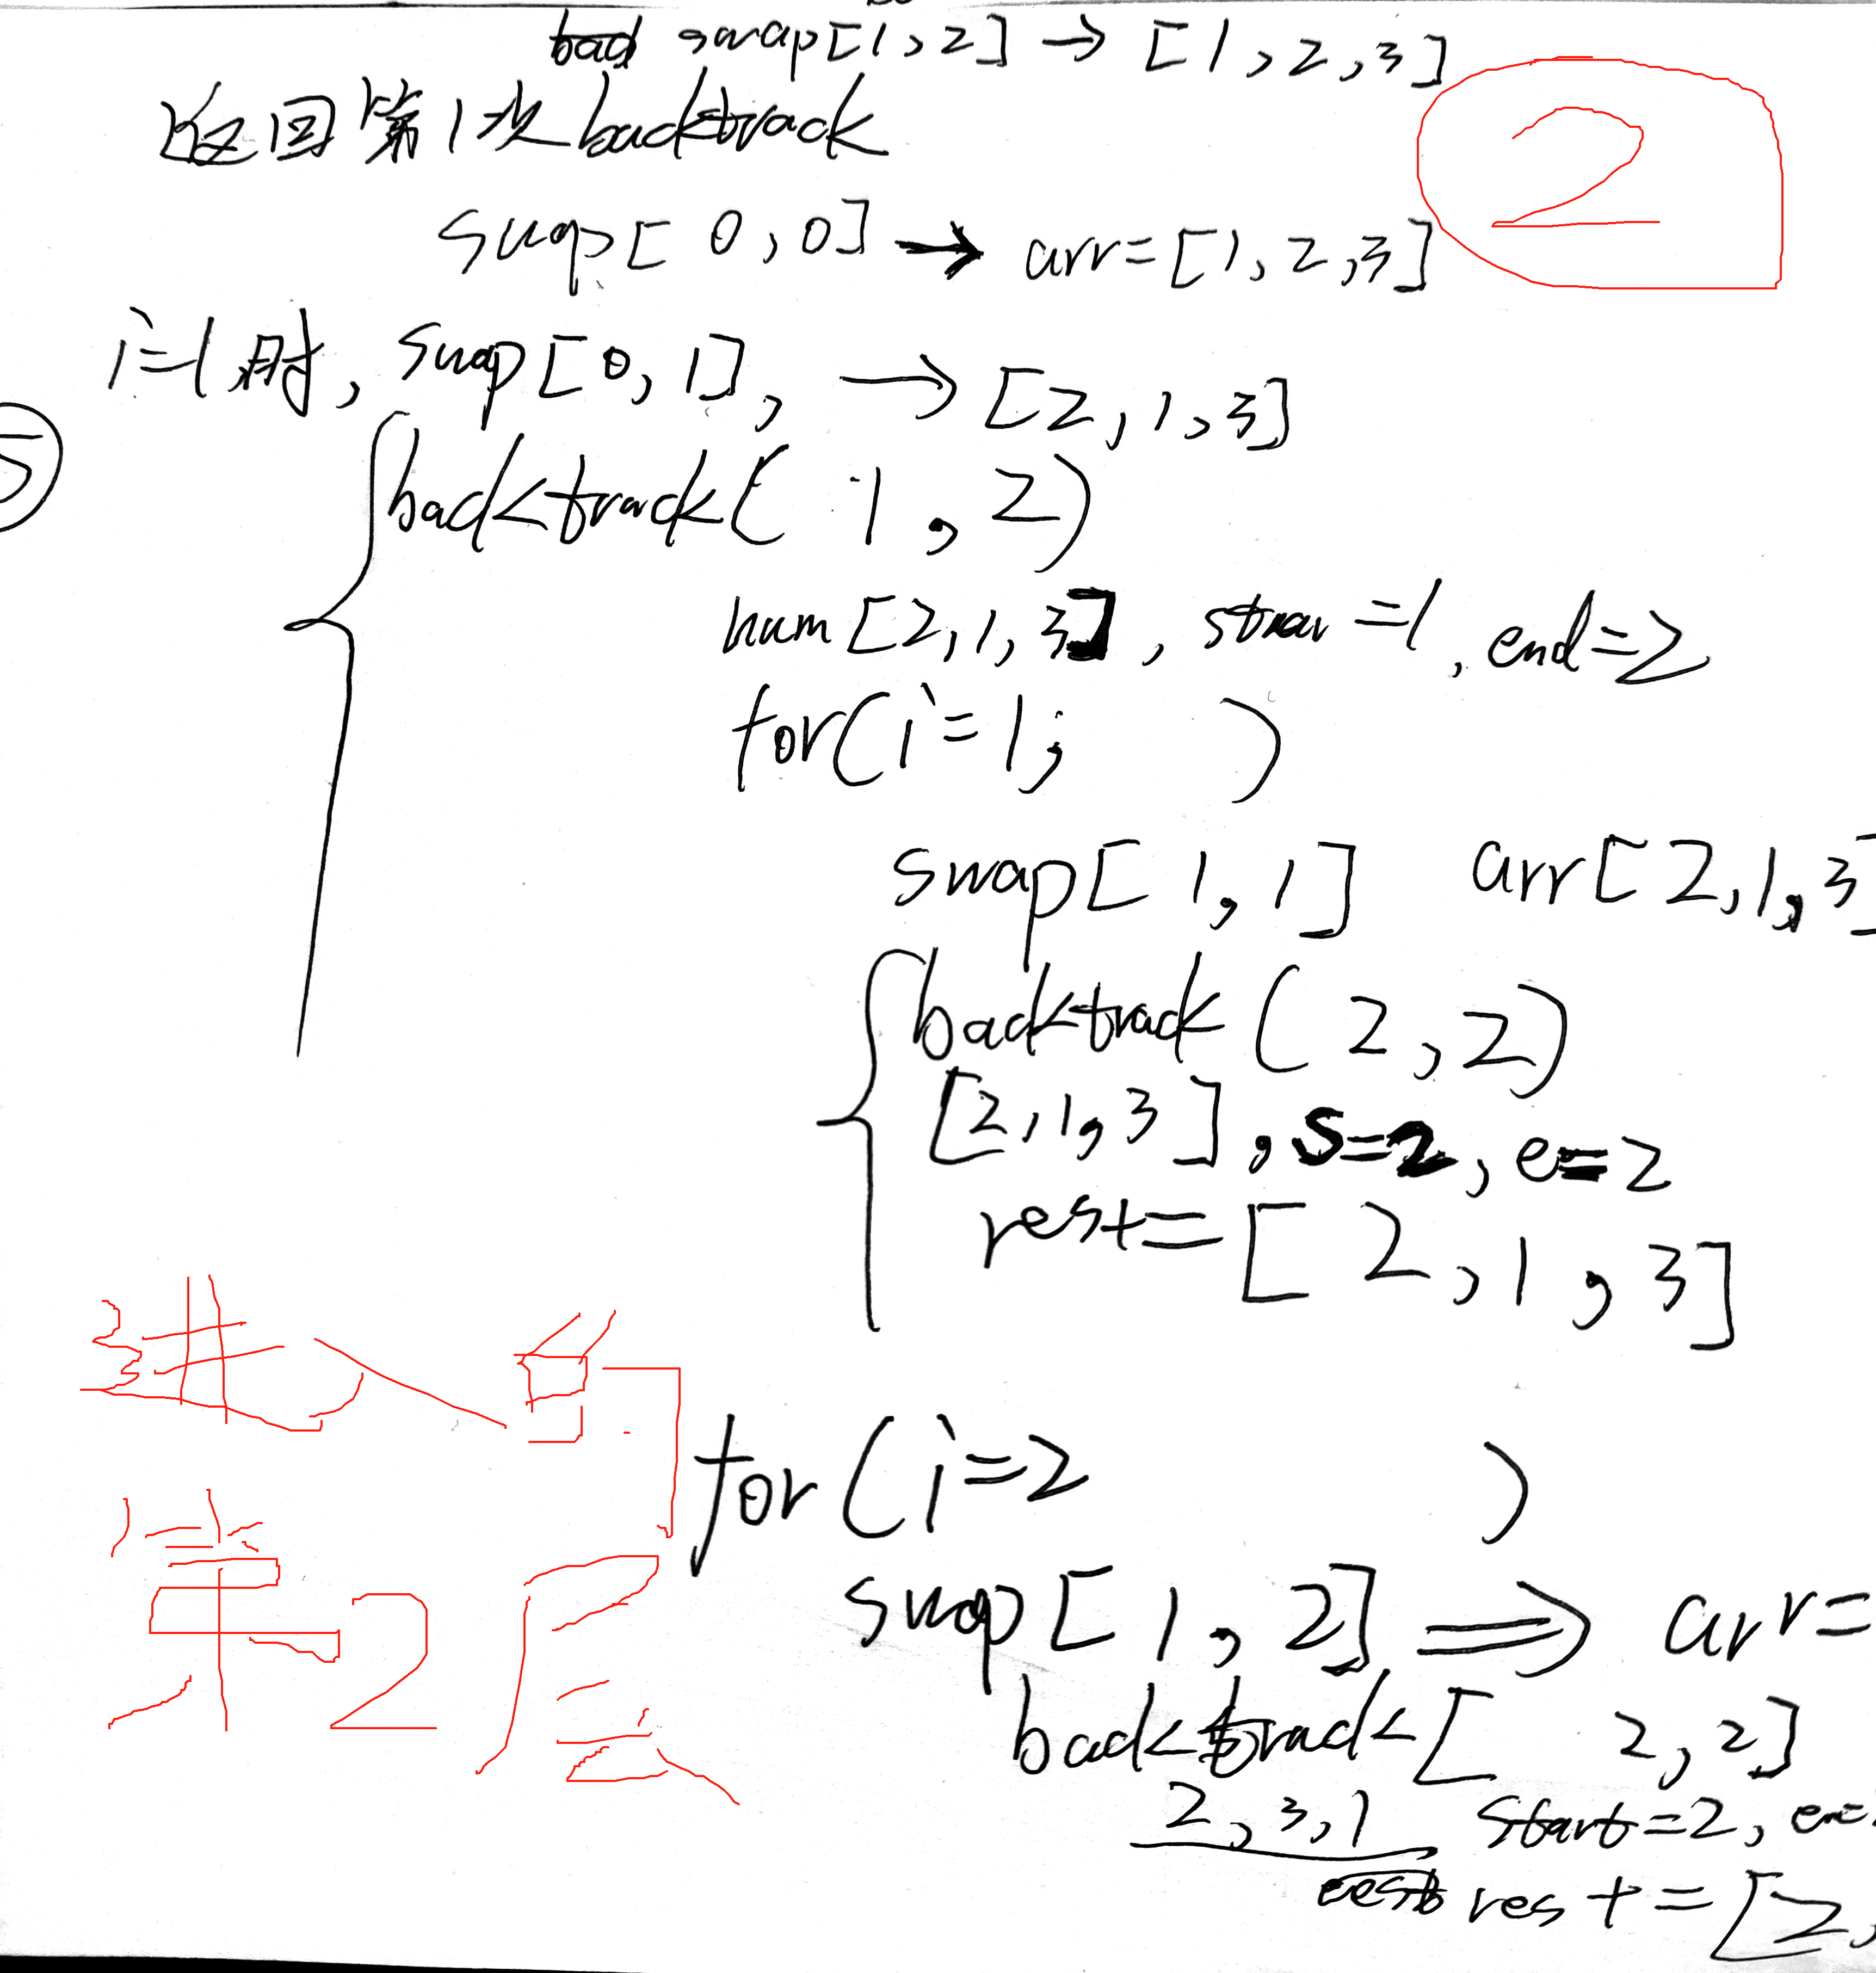 swap[1,2] → [1,2,3]
返回第1次backtrack
2
swap[0,0] → arr=[1,2,3]
i=1时, swap[0,1], → [2,1,3]
backtrack( 1 , 2)
num[2,1,3], =1, end=2
for(i=1; )
swap[1,1] arr[2,1,3]
backtrack(2,2)
[2,1,3], s=2, e=2
res+=[2,1,3]
进入的
第2层
for(i=2 )
swap[1,2] ⇒ arr=
backtrack[ 2,2]
2,3,1 start=2,
res+=[2,